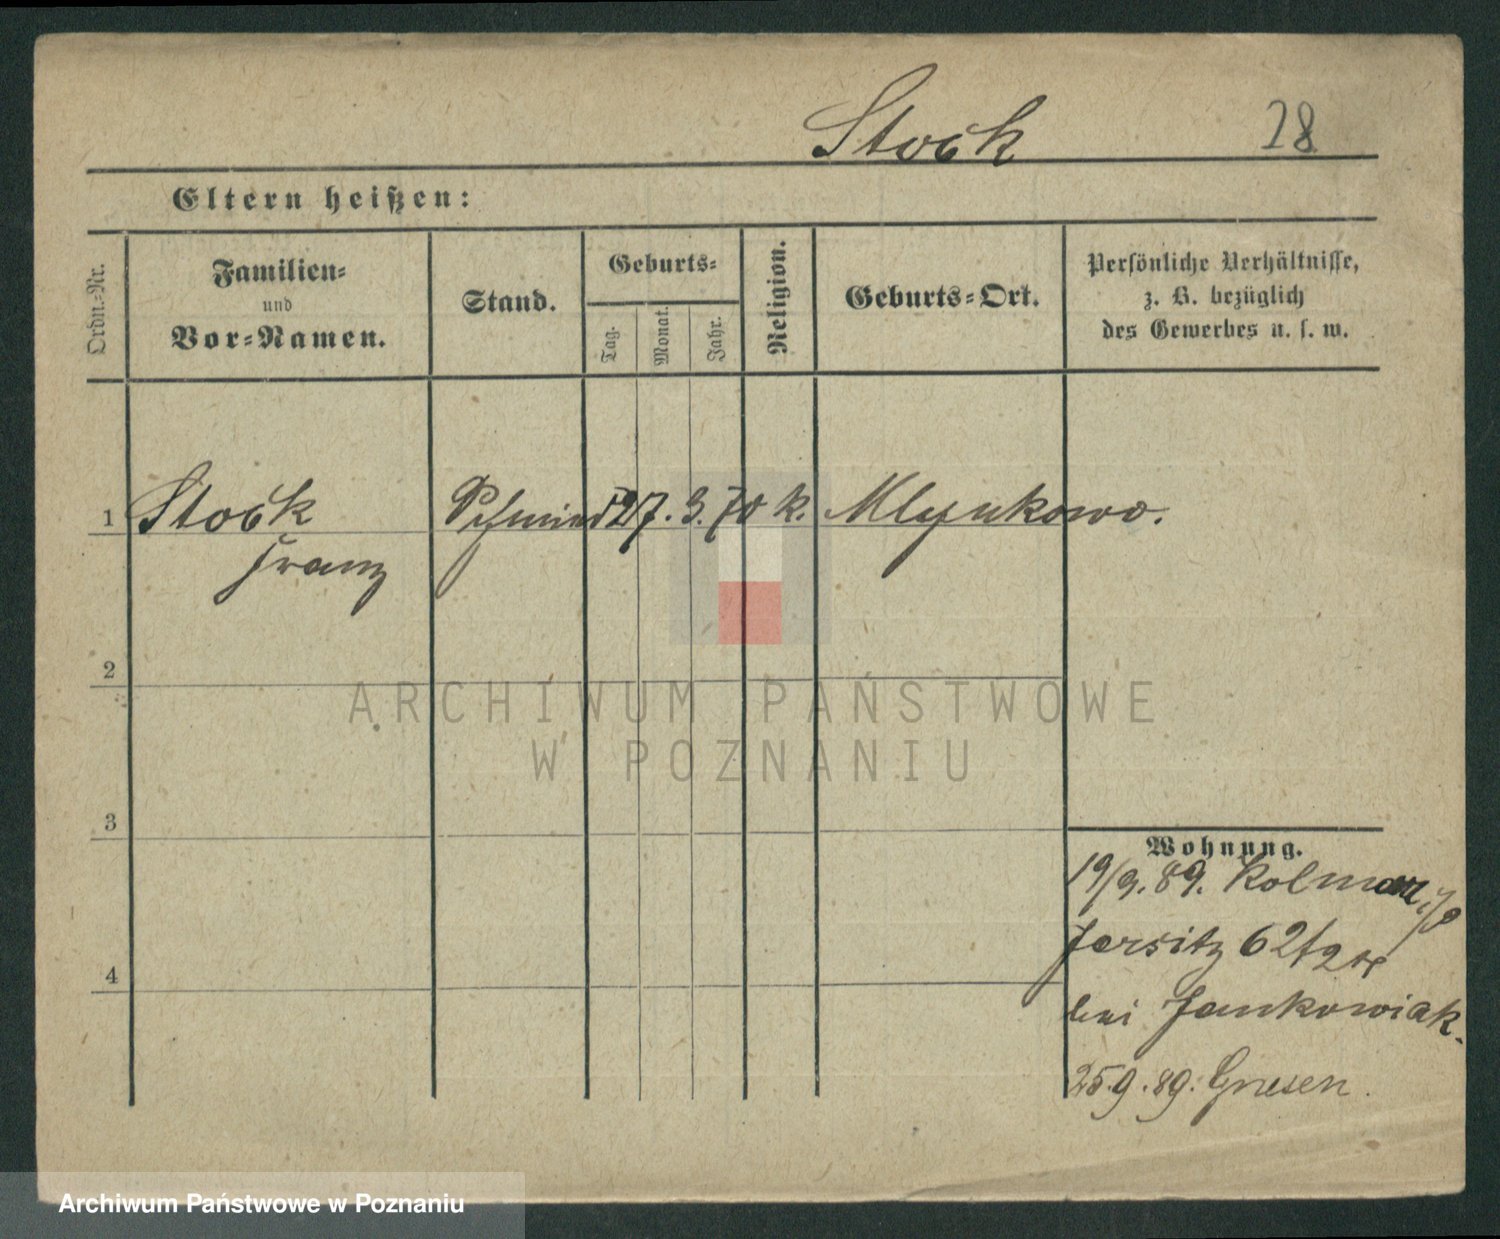 Stock 28
Eltern heißen:
Ordn.-Nr.
Familien-
und
Vor-Namen.
Stand.
Geburts-
Tag.
Monat.
Jahr.
Religion.
Geburts-Ort.
Persönliche Verhältnisse,
z. B. bezüglich
des Gewerbes u. s. w.
1 Stock Schmied 27. 3. 70 k. Mlynkowo.
Franz
2
ARCHIWUM PAŃSTWOWE
W POZNANIU
3
Wohnung.
19/9. 89. Kolmar i/P
Jersitz 62
bei Jankowiak.
4
25.9.89. Gnesen.
Archiwum Państwowe w Poznaniu